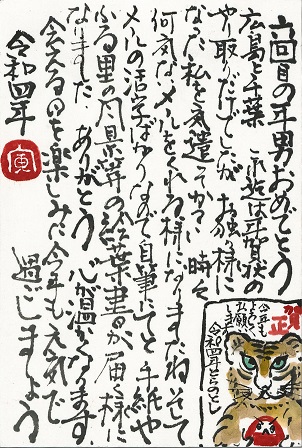 六回目の年男おめでとう
広島と千葉 これ迄は年賀状の
やり取りだけでしたが お独り様に
なった私を気遣ってかさい 時々
何気なくメールをくれる様になりましたね そして
メールの活字ばかりなので自筆にてと手紙や
ふる里の風景等の絵葉書が届く様に
なりました ありがとう 心が温かくなります
会える日を楽しみに今年も元気で
過ごしましょう
令和四年
寅
賀正
今年も
よろしく
お願い
します
令和四年とらのとし